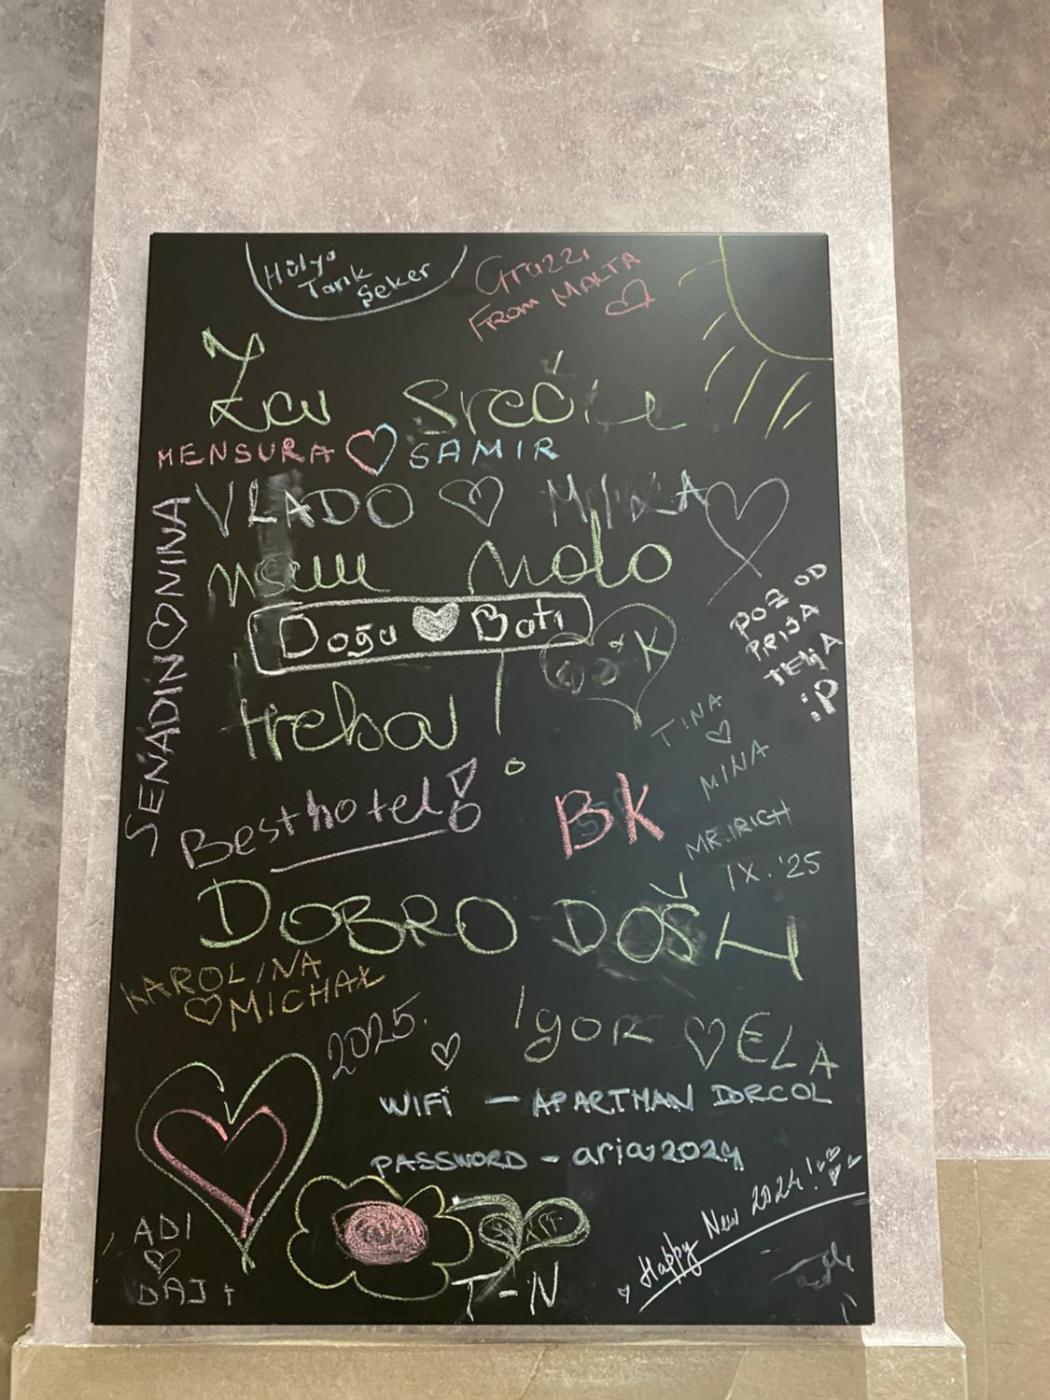 Hülya
Tarık
Şeker
Grazzi
FROM MALTA
Za sreću
MENSURA SAMIR
VLADO
nam malo
Doğa Batı
K
treba!
SENADIN NINA
POZ OD
PRIJA
TELJA
:P
TINA
MINA
Best hotel!
BK
MR.IRICH
IX.'25
DOBRO DOŠLI
KAROLINA
MICHAŁ
2025.
Igor ELA
WIFI — APARTMAN DORCOL
PASSWORD - aria2024
Happy New 2024!
ADI
T-N